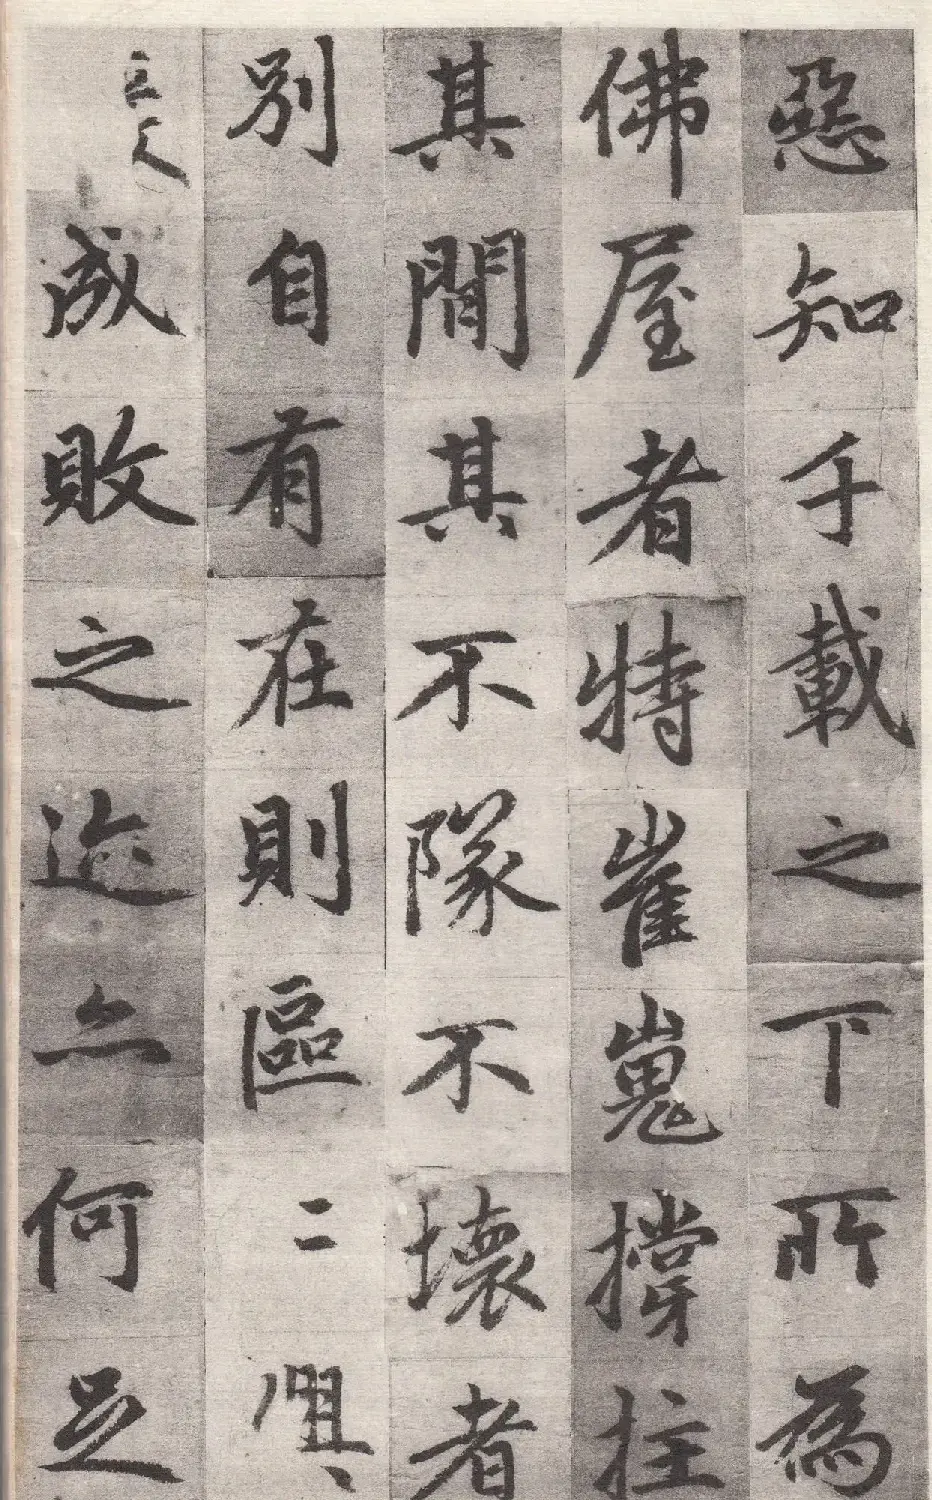 惡知千載之下所為
佛屋者特崔嵬撐拄
其間其不隊不壞者
別自有在則區二
成敗之迹亦何足